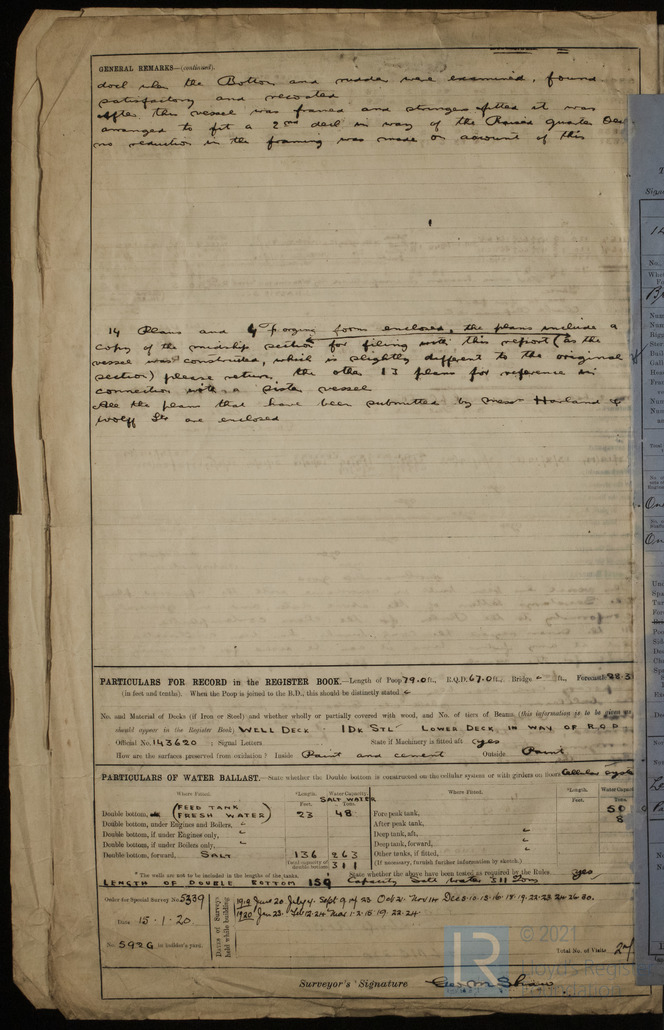 GENERAL REMARKS—(continued).
dock when the Bottom and rudder were examined, found
satisfactory and recoated
After this vessel was framed and stringers fitted it was
arranged to fit a 2nd deck in way of the Raised Quarter Dec
no reduction in the framing was made on account of this
14 Plans and forging form enclosed, the plans include a
copy of the midship section for filing with this report (as the
vessel was constructed, which is slightly different to the original
section) please return the other 13 plans for reference in
connection with a sister vessel
All the plans that have been submitted by Messrs Harland &
Wolff Ltd are enclosed
PARTICULARS FOR RECORD in the REGISTER BOOK.—Length of Poop 79.0 ft., R.Q.D. 67.0 ft., Bridge - ft., Forecastle 28.3
(in feet and tenths). When the Poop is joined to the B.D., this should be distinctly stated
No. and Material of Decks (if Iron or Steel) and whether wholly or partially covered with wood, and No. of tiers of Beams (this information is to be given as
should appear in the Register Book) WELL DECK 1 DK STL LOWER DECK IN WAY OF R.Q.D
Official No. 143620 ; Signal Letters State if Machinery is fitted aft yes
How are the surfaces preserved from oxidation? Inside Paint and cement Outside Paint
PARTICULARS OF WATER BALLAST.—State whether the Double bottom is constructed on the cellular system or with girders on floors Cellular syste
Where Fitted. *Length. Water Capacity. Where Fitted. *Length. Water Capacit
Feet. SALT WATER Tons. Feet. Tons.
Double bottom, (FEED TANK FRESH WATER) 23 48 Fore peak tank, 50
Double bottom, under Engines and Boilers, " After peak tank, 8
Double bottom, if under Engines only, " Deep tank, aft, "
Double bottom, if under Boilers only, " Deep tank, forward, "
Double bottom, forward, SALT 136 263 Other tanks, if fitted, "
Total capacity of double bottom 311 (If necessary, furnish further information by sketch.)
*The wells are not to be included in the lengths of the tanks. State whether the above have been tested as required by the Rules yes
LENGTH OF DOUBLE BOTTOM 159 Capacity Salt Water 311 Tons
Order for Special Survey No. 5339
Date 15.1.20
No. 592G in builder's yard.
Dates of Surveys held while building
1919 June 20 July 4. Sept 9. 17. 23 Oct 21. Nov 14 Dec 5.10.13.16.18.19.22.23.24.26.30.
1920 Jan 23. Feb 12.24 Mar 1.2.15.19.22.24
Total No. of Visits 27
Surveyor's Signature Geo M Shaw
© 2021
Lloyd's Regist
Foundation